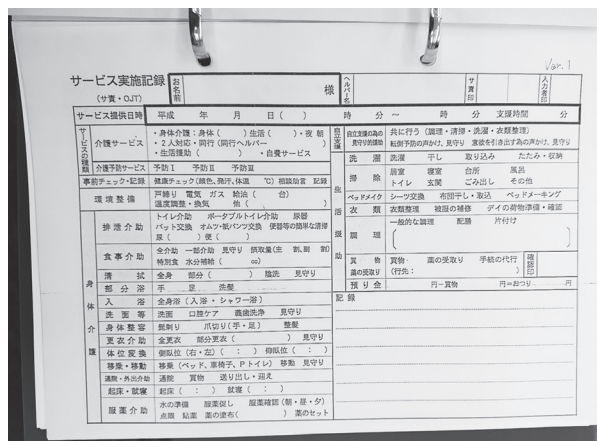 Var.1
サービス実施記録
(サ責・OJT)
お名前
様
ヘルパー名
サ責印
入力者印
サービス提供日時
平成　年　月　日（　）
時　分　～　時　分　支援時間　分
サービスの種類
介護サービス
・身体介護：身体（　）生活（　）・夜 朝
・2人対応・同行(同行ヘルパー　）
・生活援助（　）　・自費サービス
介護予防サービス
予防Ⅰ　予防Ⅱ　予防Ⅲ
事前チェック・記録
健康チェック(顔色、発汗、体温　℃) 相談助言 記録
環境整備
戸締り 電気 ガス 給油（　台）
温度調整・換気 他（　）
身体介護
排泄介助
トイレ介助　ポータブルトイレ介助　尿器
パット交換 オムツ・紙パンツ交換 便器等の簡単な清掃
尿（　）便（　）
食事介助
全介助 一部介助 見守り 摂取量(主　割、副　割)
特別食 水分補給（　cc）
清拭
全身 部分（　）陰洗 見守り
部分浴
手　足　洗髪
入浴
全身浴（入浴・シャワー浴）
洗面等
洗面　口腔ケア　義歯洗浄　見守り
身体整容
髭剃り　爪切り（手・足）　整髪
更衣介助
全更衣　部分更衣（　）見守り
体位変換
側臥位（右・左）（　：　）仰臥位（　：　）
移乗・移動
移乗（ベッド、車椅子、Pトイレ）移動 見守り
通院・外出介助
通院　買物　送り出し・迎え
起床・就寝
起床（　：　）就寝（　：　）
服薬介助
水の準備　服薬促し　服薬確認（朝・昼・夕）
点眼 貼薬 薬の塗布（　）薬のセット
自立支援
自立支援の為の
見守り的援助
共に行う（調理・清掃・洗濯・衣類整理）
転倒予防の声かけ、見守り 意欲を引き出す為の声かけ、見守り
生活援助
洗濯
洗濯　干し　取り込み　たたみ・収納
掃除
居室　寝室　台所　風呂
トイレ　玄関　ごみ出し　その他
ベッドメイク
シーツ交換　布団干し・取込　ベッドメーキング
衣類
衣類整理　被服の修補　デイの荷物準備・確認
調理
一般的な調理　配膳　片付け
買物
薬の受取り
買物　薬の受取り　手続の代行
(行先：　)
確認印
預り金
円－買物　円＝おつり　円
記録